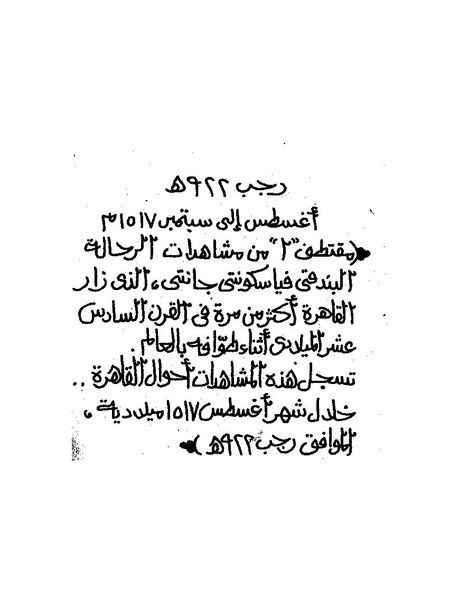 رجب ٩٢٢هـ
أغسطس إلى سبتمبر ١٥١٧م
(مقتطف "أ" من مشاهدات الرحالة
البندقى فياسكونتى جانتى، الذى زار
القاهرة أكثر من مرة فى القرن السادس
عشر الميلادى أثناء طوافه بالعالم
تسجل هذه المشاهدات أحوال القاهرة ..
خلال شهر أغسطس ١٥١٧ ميلادية،
الموافق رجب ٩٢٢هـ)